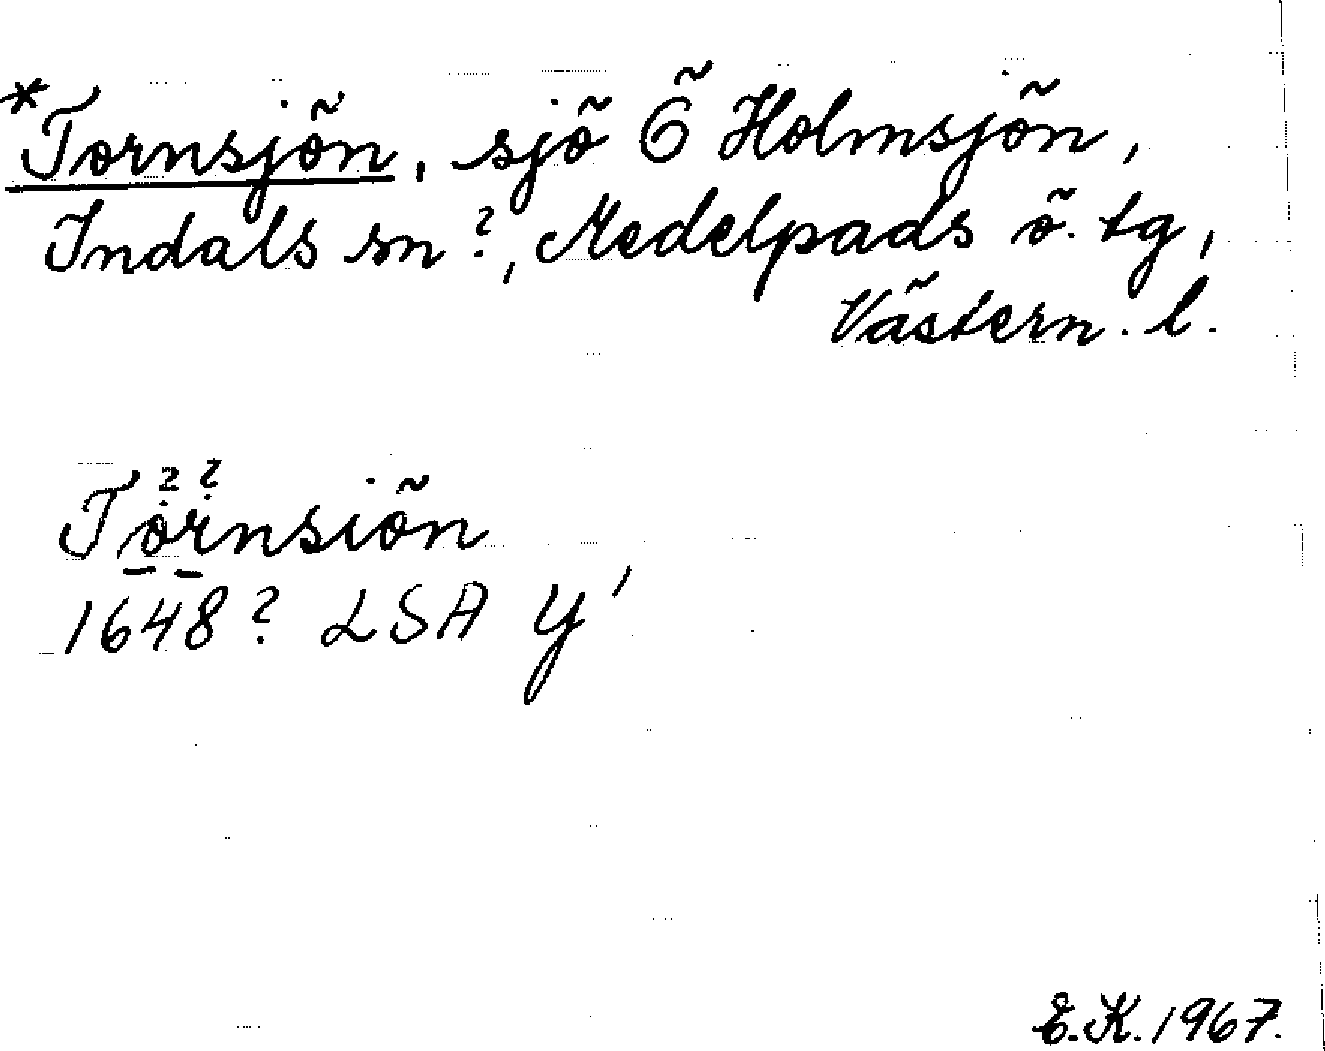 *Tornsjön, sjö Ö Holmsjön,
Indals sn?, Medelpads ö. tg,
Västern. l.
? ?
Tornsiön
1648? LSA Y'
E.K. 1967.